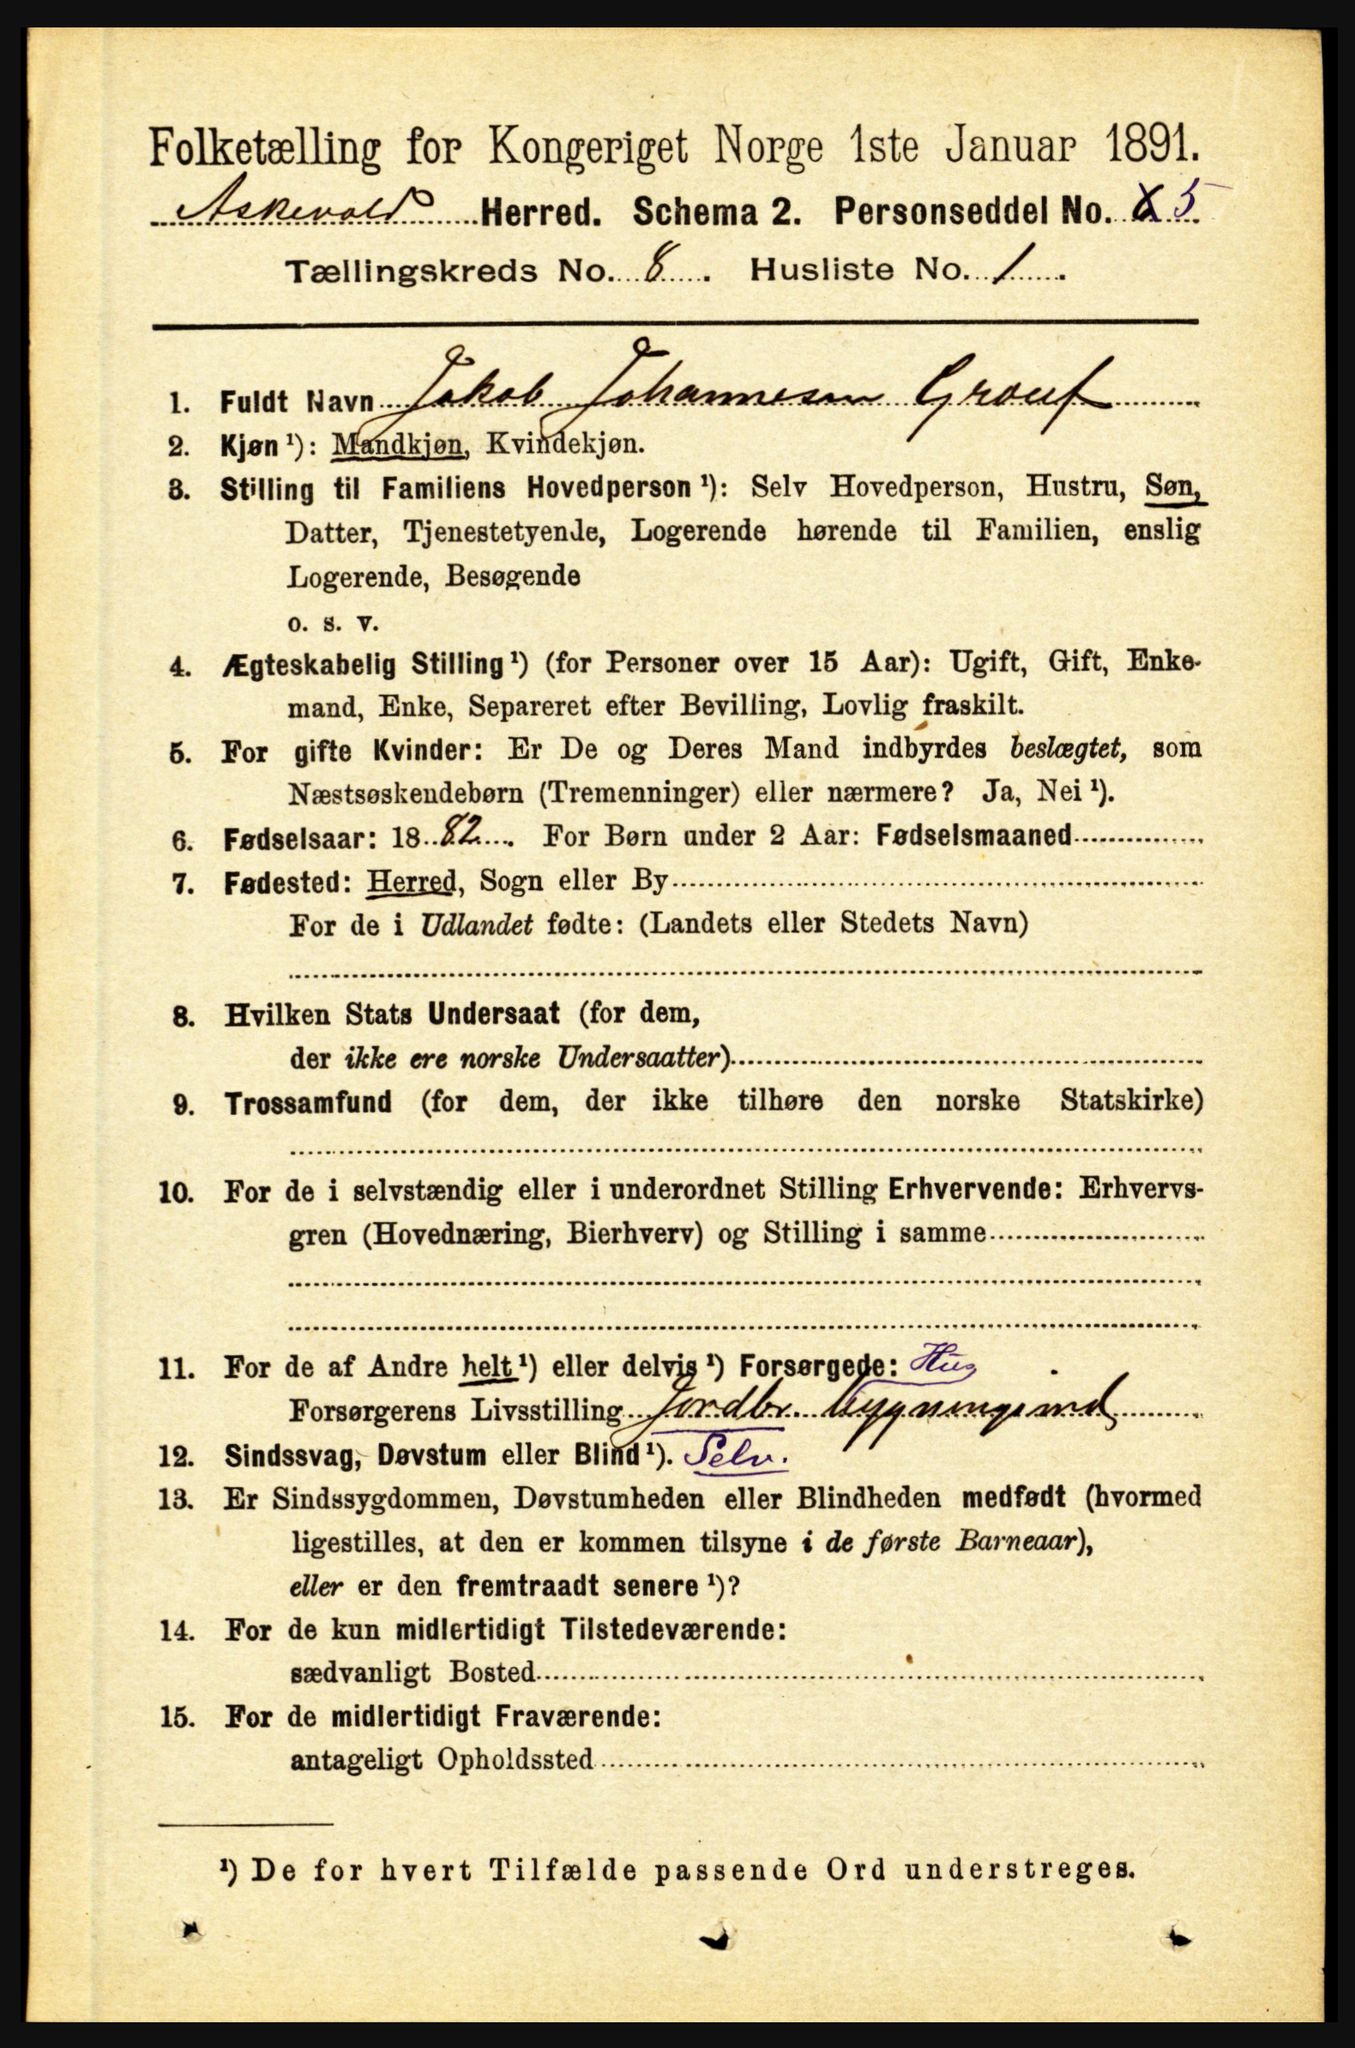 Folketælling for Kongeriget Norge 1ste Januar 1891.
Askevold Herred. Schema 2. Personseddel No. 5
Tællingskreds No. 8. Husliste No. 1.
1. Fuldt Navn Jakob Johannesen
2. Kjøn ¹): Mandkjøn, Kvindekjøn.
3. Stilling til Familiens Hovedperson ¹): Selv Hovedperson, Hustru, Søn,
Datter, Tjenestetyende, Logerende hørende til Familien, enslig
Logerende, Besøgende
o. s. v.
4. Ægteskabelig Stilling ¹) (for Personer over 15 Aar): Ugift, Gift, Enke-
mand, Enke, Separeret efter Bevilling, Lovlig fraskilt.
5. For gifte Kvinder: Er De og Deres Mand indbyrdes beslægtet, som
Næstsøskendebørn (Tremenninger) eller nærmere? Ja, Nei ¹).
6. Fødselsaar: 1882. For Børn under 2 Aar: Fødselsmaaned
7. Fødested: Herred, Sogn eller By
For de i Udlandet fødte: (Landets eller Stedets Navn)
8. Hvilken Stats Undersaat (for dem,
der ikke ere norske Undersaatter)
9. Trossamfund (for dem, der ikke tilhøre den norske Statskirke)
10. For de i selvstændig eller i underordnet Stilling Erhvervende: Erhvervs-
gren (Hovednæring, Bierhverv) og Stilling i samme
11. For de af Andre helt ¹) eller delvis ¹) Forsørgede: Hus
Forsørgerens Livsstilling Jordbr. bygningsind
12. Sindssvag, Døvstum eller Blind ¹). Selv.
13. Er Sindssygdommen, Døvstumheden eller Blindheden medfødt (hvormed
ligestilles, at den er kommen tilsyne i de første Barneaar),
eller er den fremtraadt senere ¹)?
14. For de kun midlertidigt Tilstedeværende:
sædvanligt Bosted
15. For de midlertidigt Fraværende:
antageligt Opholdssted
¹) De for hvert Tilfælde passende Ord understreges.